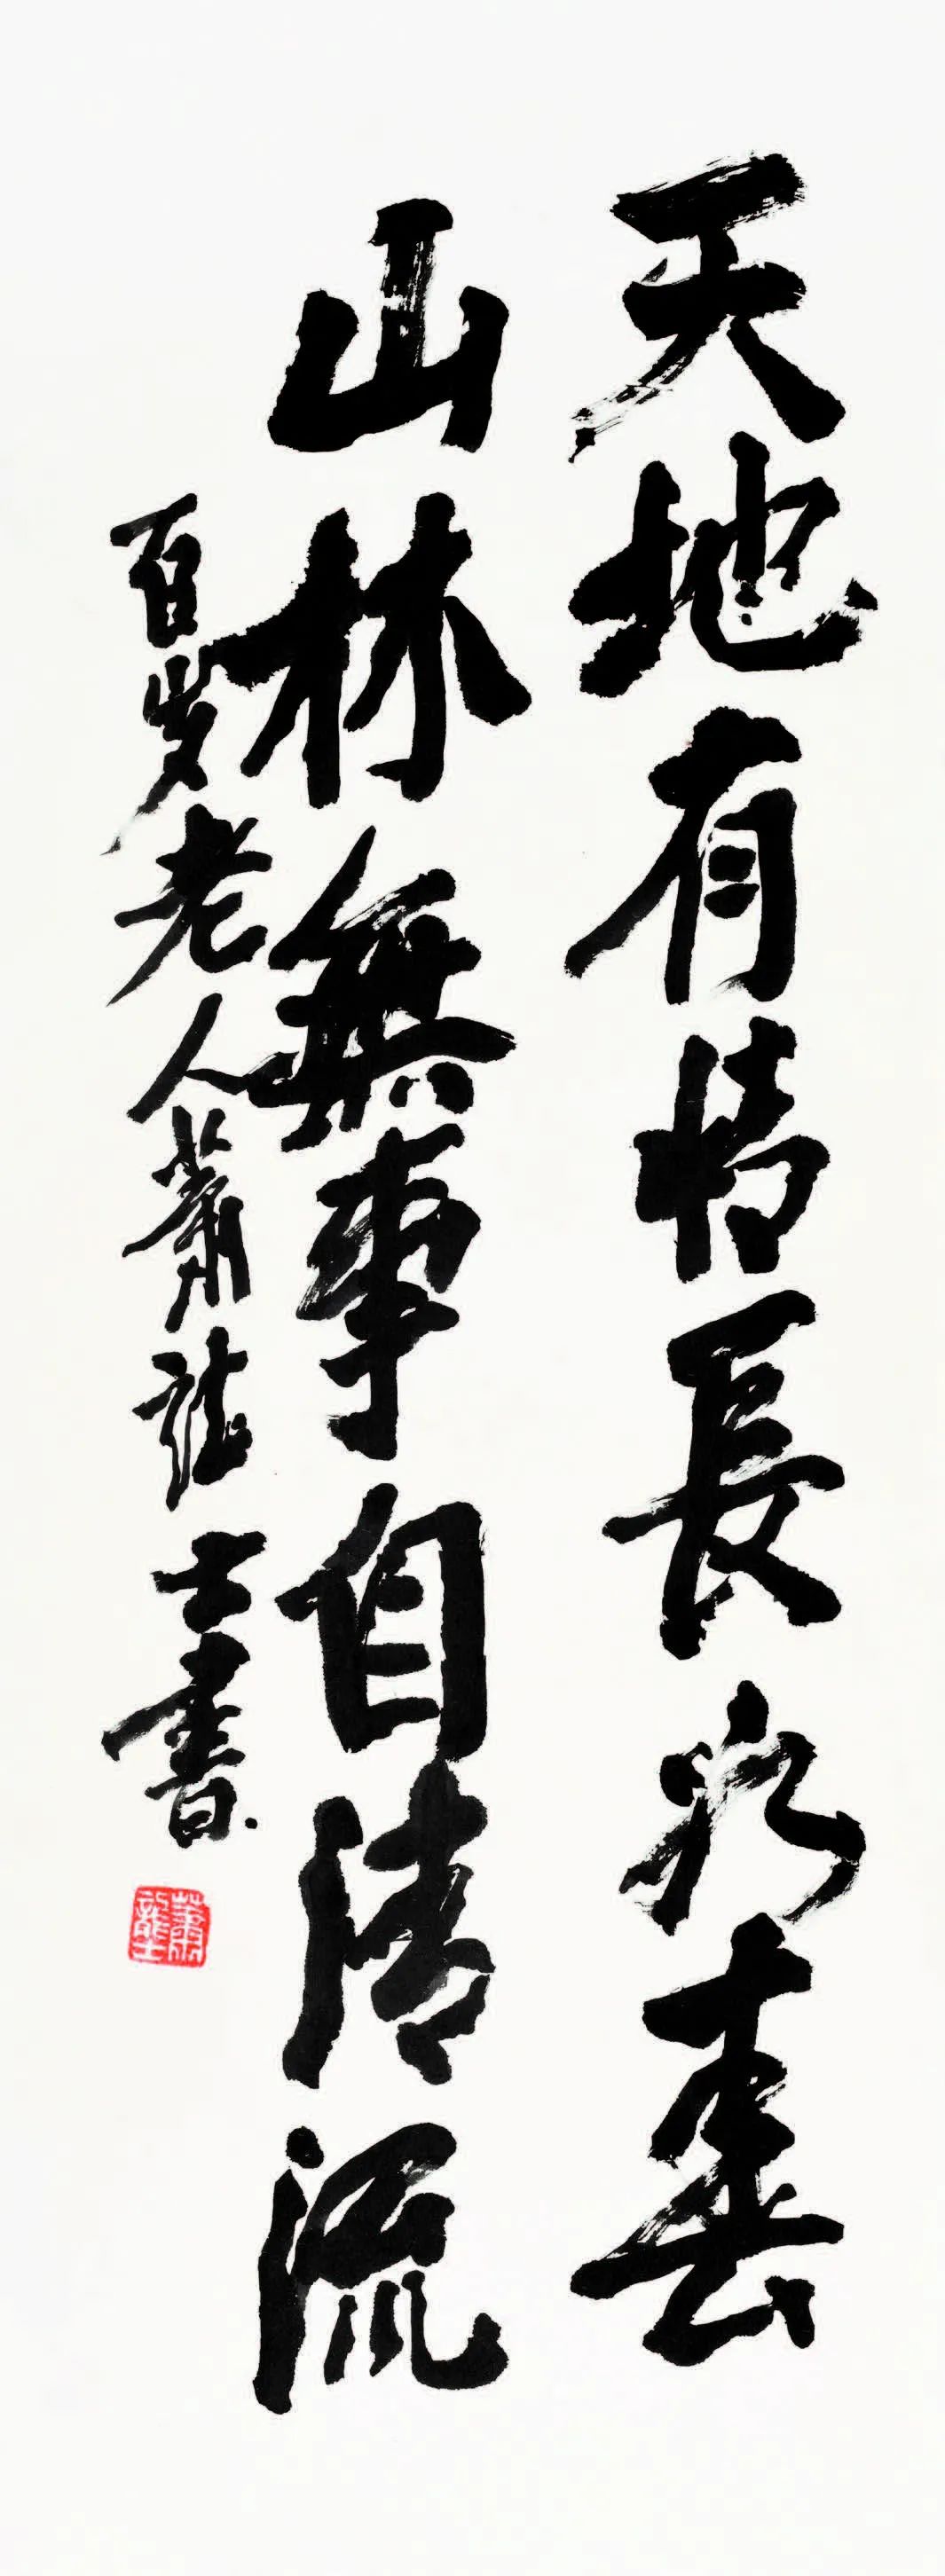 天地有情長永壽
山林無事自清流
百岁老人蕭龍士書
蕭龍士